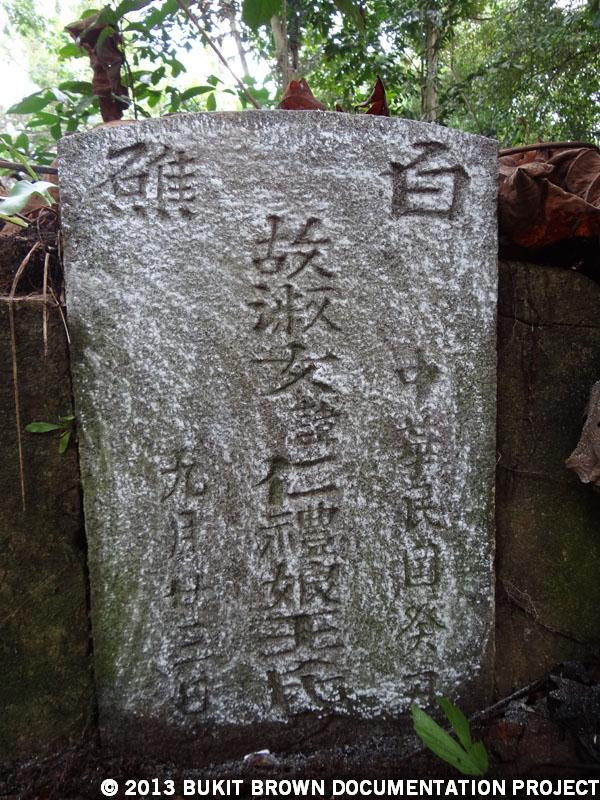 白礁
中華民國癸丑
故淑女諱仁禮娘王
九月廿三日
© 2013 BUKIT BROWN DOCUMENTATION PROJECT